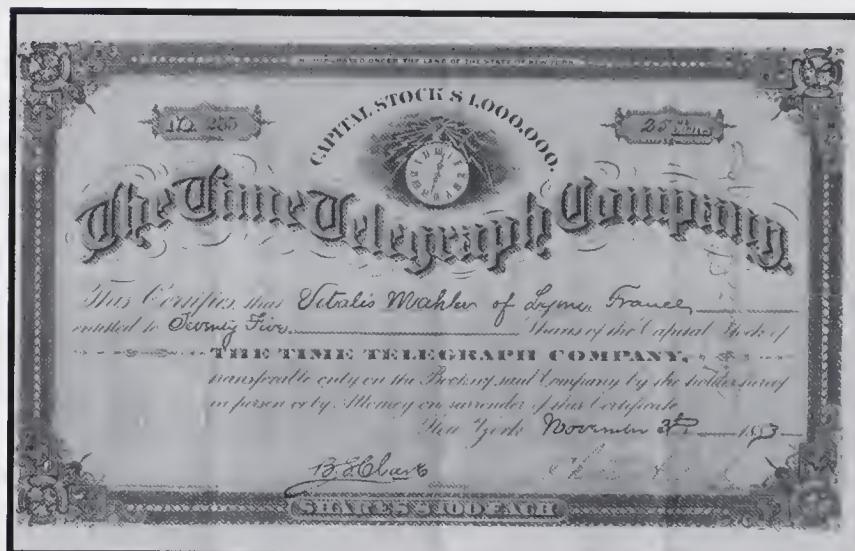 INCORPORATED UNDER THE LAWS OF THE STATE OF NEW YORK
CAPITAL STOCK $1,000,000.
No. 255
25 Shares
The Time Telegraph Company.
This Certifies that Vitalis Mahler of Lyons France
entitled to Twenty Five Shares of the Capital Stock of
THE TIME TELEGRAPH COMPANY,
transferable only on the Books of said Company by the holder
in person or by Attorney on surrender of this Certificate
New York November 1883
B. F. Clark
SHARES $100 EACH